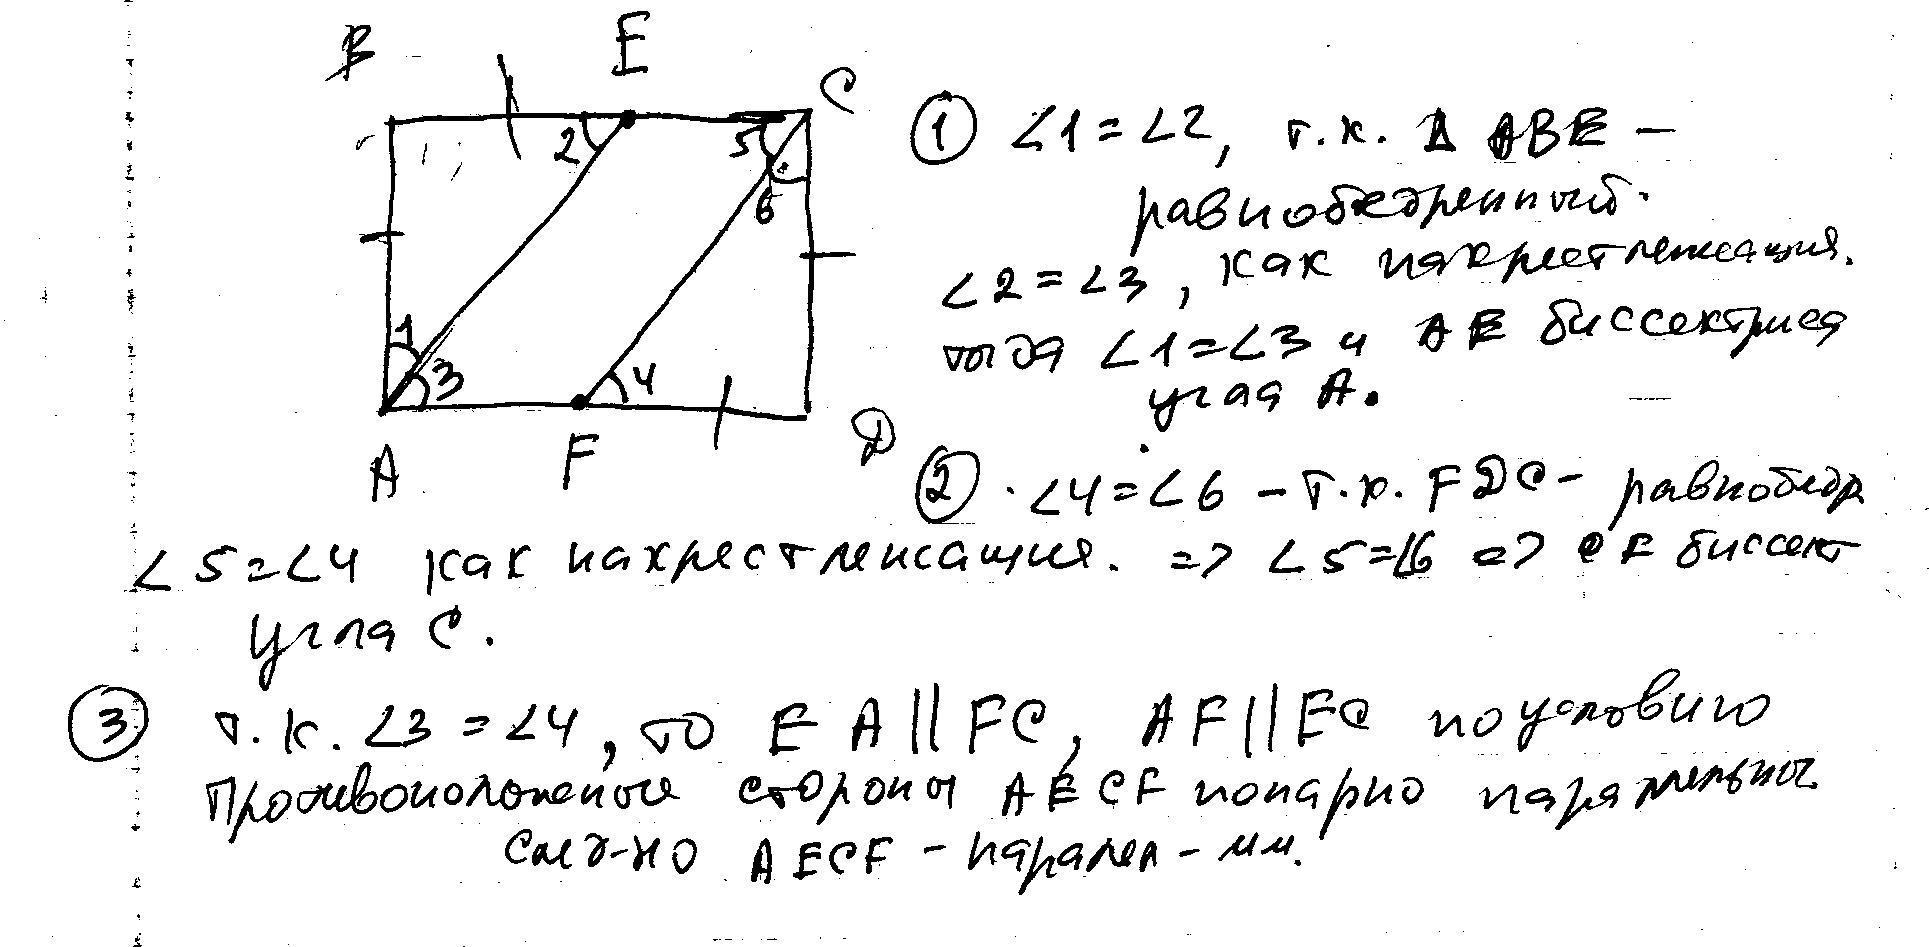 B E C
2 5 6
1 3 4
A F D
① ∠1 = ∠2, т.к. Δ ABE –
равнобедренный.
∠2 = ∠3, как накрестлежащия.
тогда ∠1 = ∠3 и AE биссектриса
угла A.
② ∠4 = ∠6 – т.к. FDC – равнобедр
∠5 = ∠4 как накрестлежащия. => ∠5 = ∠6 => CF биссект
угла C.
③ т.к. ∠3 = ∠4, то EA || FC, AF || EC по условию
Противоположные стороны AECF попарно параллельны
след-но AECF – паралел-мм.